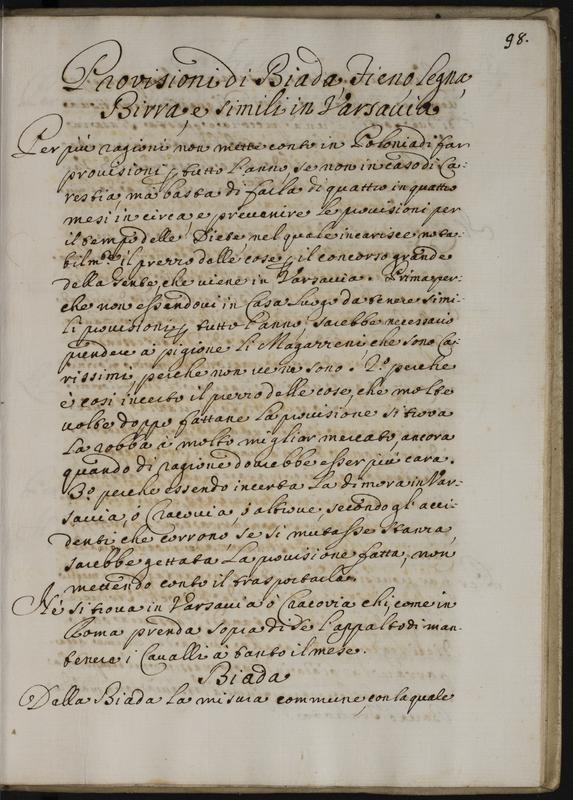 98.
Provisioni di Biada, Fieno, legna,
Birra, e simili in Varsavia
Per più ragioni non mette conto in Polonia di far
provisioni p tutto l'anno, se non in caso di Ca:
restia, ma basta di farla di quattro in quattro
mesi in circa, e prevenire le provisioni per
il tempo delle Diete nel quale incarisce nota:
bilmte il prezzo delle cose p il concorso grande
della gente che viene in Varsavia. Prima per:
che non essendovi in Casa luogo da tenere simi:
li provisioni p tutto l'anno, sarebbe necessario
prendere a pigione li Magazzeni che sono Ca:
rissimi, perche non ve ne sono. 2º perche
è così incerto il prezzo delle cose, che molte
volte doppo fattane la provisione si trova
la robba à molto miglior mercato, ancora
quando di ragione dovrebbe esser più cara.
3º perche essendo incerta la dimora in Var:
savia, ò Cracovia, ò altrove, secondo gli acci:
denti che corrono, se si mutasse stanza,
sarebbe gettata la provisione fatta, non
mettendo conto il trasportarla.
Nè si trova in Varsavia ò Cracovia chi, come in
Roma prenda sopra di sè l'appalto di man:
tenere i Cavalli à tanto il mese.
Biada
Dalla Biada la misura commune, con la quale